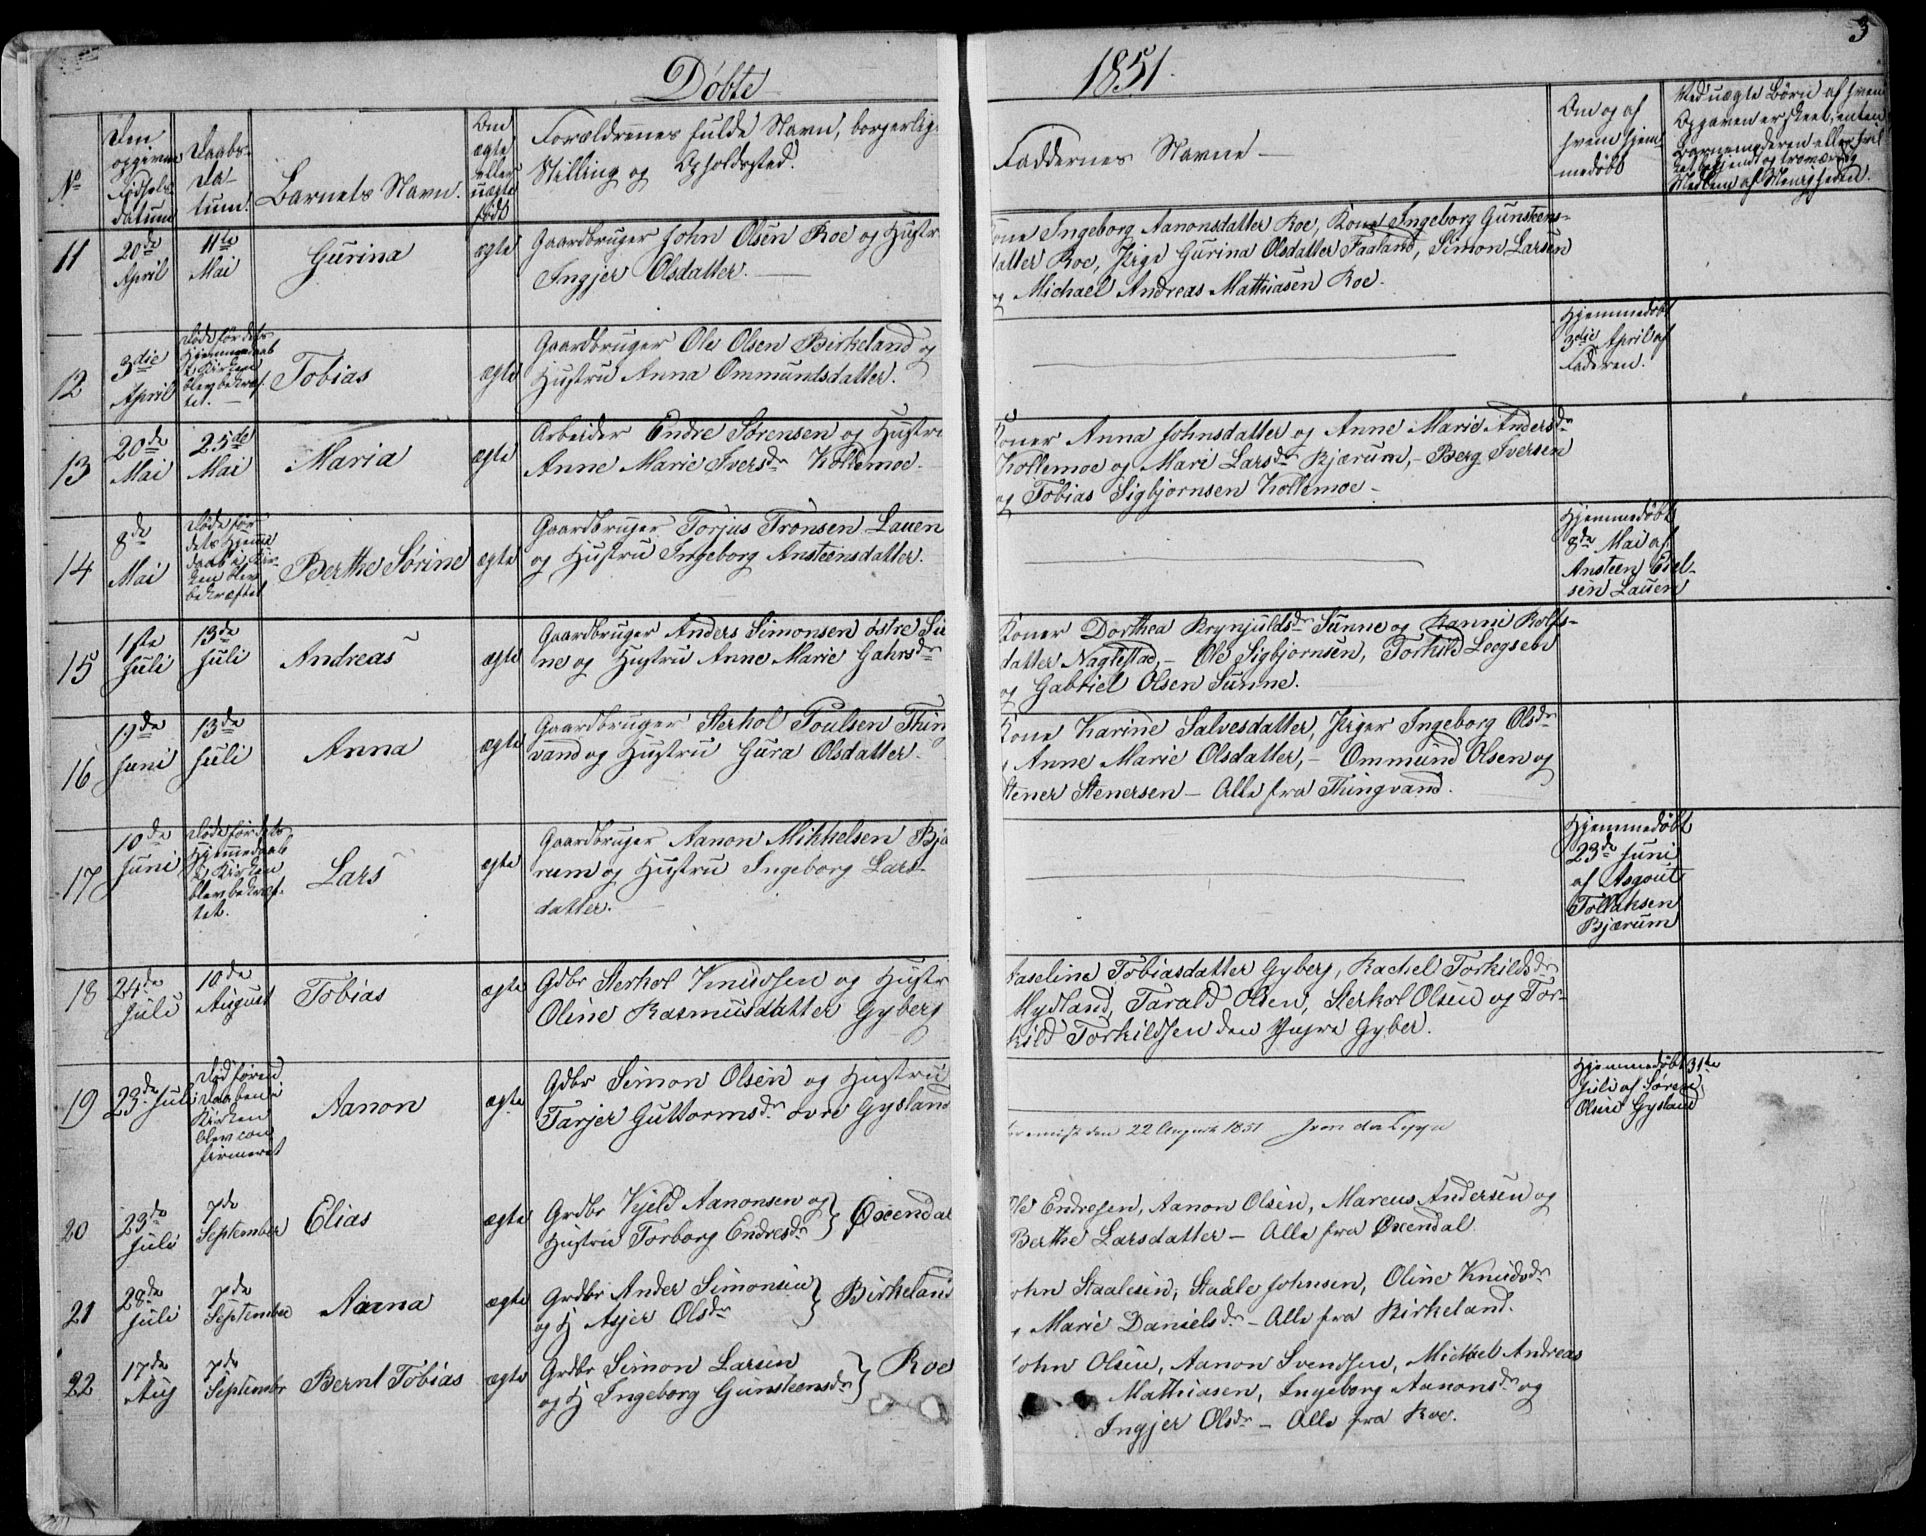 3
Døbte 1851.
No
Den opgivne Fødsels-datum
Daabs-Da-tum.
Barnets Navn.
Om ægte eller uægte født
Forældrenes fulde Navn, borgerlig
Stilling og Opholdssted.
Faddernes Navne —
Om og af hvem hjem-medøbt
Ved uægte Børn af hvem
Opgaven er skeet, enten
Barnemoderen eller
troværdig
Medlem af Menigheden.
11 20de April 11te Mai Gurina ægte
Gaardbruger John Olsen Roe og Hustr
Ingjer Olsdatter. —
Kone Ingeborg Aanonsdatter Roe, Kone Ingeborg Gunsteens-
datter Roe, Pige Gurina Olsdatter Faaland, Simon Larsen
og Michael Andreas Matthiasen Roe.
12 3die April
Døde før dets
Hjemmedaab
i Kirken
blev bekræf-
tet. —
Tobias ægte
Gaardbruger Ole Olsen Birkeland og
Hustru Anna Ommundsdatter.
Hjemmedøbt
3die April af
Faderen.
13 20de Mai 25de Mai Maria ægte
Arbeider Endre Sørensen og Hustru
Anne Marie Iversdr Kollemoe.
Koner Anna Johnsdatter og Anne Marie Andersdr
Kollemoe og Mari Larsdr Bjærum, – Berg Iversen
og Tobias Sigbjørnsen Kollemoe –
14 8de Mai
Døde før
dets Hjemme
daab i Kir-
ken blev
bekræftet
Berthe Sørine ægte
Gaardbruger Torjus Tronsen Lauen
og Hustru Ingeborg Ansteensdatter.
Hjemmedøbt
8de Mai af
Ansteen Eiel-
sen Lauen
15 1ste Juli 13de Juli Andreas ægte
Gaardbruger Anders Simonsen østre Sun
ne og Hustru Anne Marie Gahrsdr
Koner Dorthea Brynjuldsdr Sunne og Ranni Rolfs-
datter Nagtestad, – Ole Sigbjørnsen, Torkild Leegsen
og Gabriel Olsen Sunne.
16 19de Juni 13de Juli Anna ægte
Gaardbruger Sterkol Poulsen Thing
vand og Hustru Gura Olsdatter.
Kone Karine Salvesdatter, Piger Ingeborg Olsdr
Anne Marie Olsdatter, – Ommund Olsen og
Stener Stenersen – Alle fra Thingvand.
17 10de Juni
Døde før dets
Hjemmedaab
i Kirken
blev bekræf-
tet.
Lars ægte
Gaardbruger Aanon Mikkelsen Bjæ
rum og Hustru Ingeborg Lars-
datter. –
Hjemmedøbt
23de Juni
af Asgout
Tollaksen
Bjærum
18 24de Juli 10de August Tobias ægte
Gdbr Sterkol Knudsen og Hustr
Oline Rasmusdatter Gyberg
Aaseline Tobiasdatter Gyberg, Rachel Torkildsdr
Mydland, Tarald Olsen, Sterkol Olsen og Tor-
kild Torkildsen den Yngre Gyber.
19 23de Juli
Død førend
Daaben i
Kirken
blev con
firmeret
Aanon ægte
Gdbr Simon Olsen og Hustru
Tarjer Guttormsdr øvre Gysland
Hjemmedøbt 31te
Juli af Søren
Olsen Gysland
den 22 August 1851
20 23de Juli 7de September Elias ægte
Grdbr Kjeld Aanonsen og
Hustru Torborg Endresdr } Øxendal
Ole Endresen, Aanon Olsen, Marcus Andersen og
Berthe Larsdatter – Alle fra Øxendal
21 28de Juli 7de September Aanna ægte
Grdbr Ander Simonsen
og H Asjer Olsdr } Birkeland
John Staalesen, Staale Johnsen, Oline Knudsdr
Marie Danielsdr – Alle fra Birkeland.
22 17de Aug 7de Septembr Bernt Tobias ægte
Grdbr Simon Larsen
og H Ingeborg Gunsteensdr } Roe
John Olsen, Aanon Svendsen, Michael Andreas
Mathiasen, Ingeborg Aanonsdr og
Ingjer Olsdr – Alle fra Roe.